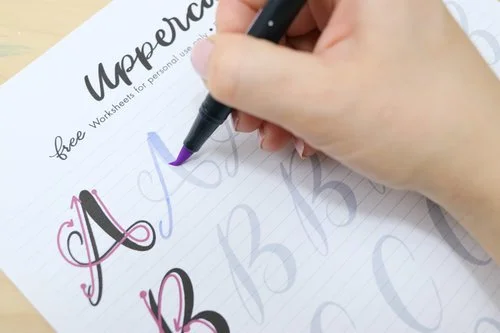 Upperca
free Worksheets for personal use only
A A A
B B B B
C C